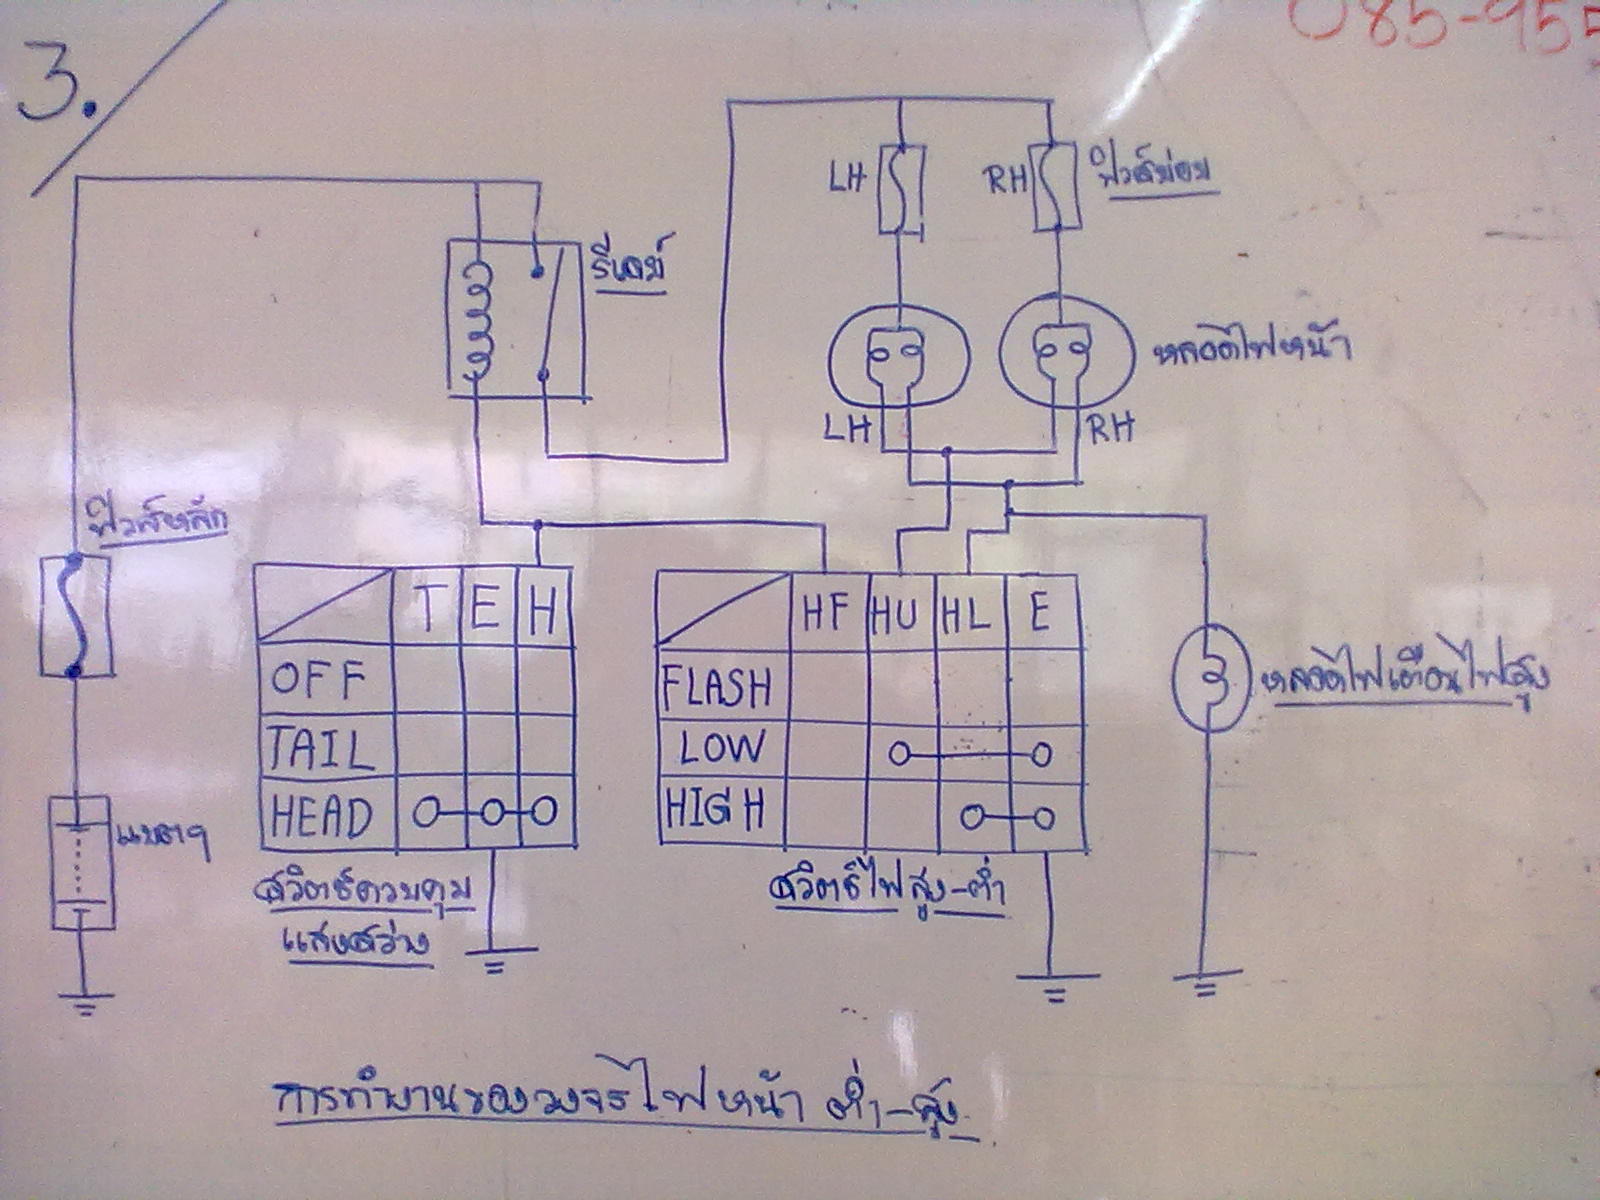 3.
085-955
LH
RH
ฟิวส์ย่อย
รีเลย์
หลอดไฟหน้า
LH
RH
ฟิวส์หลัก
T E H
OFF
TAIL
HEAD
HF HU HL E
FLASH
LOW
HIGH
หลอดไฟเตือนไฟสูง
แบตฯ
สวิตช์ควบคุม
แสงสว่าง
สวิตช์ไฟสูง-ต่ำ
การทำงานของวงจรไฟหน้า ต่ำ-สูง